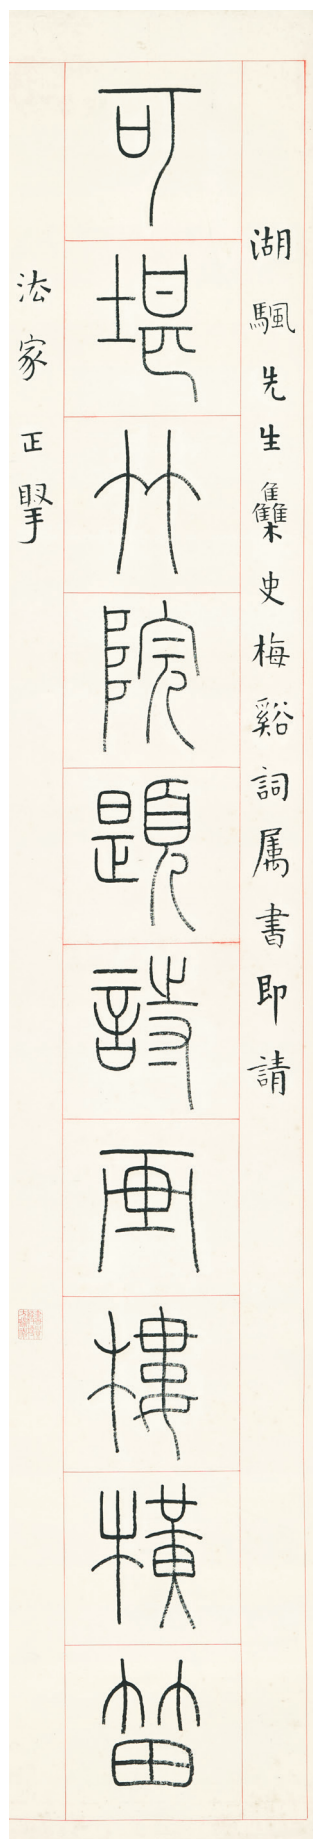 湖颿先生雧史梅谿詞属書即請
可堪竹院題詩画樓橫笛
法家正掔